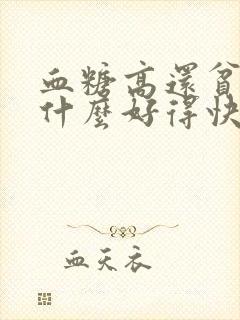 血糖高還貧
什麼好得快
血天衣